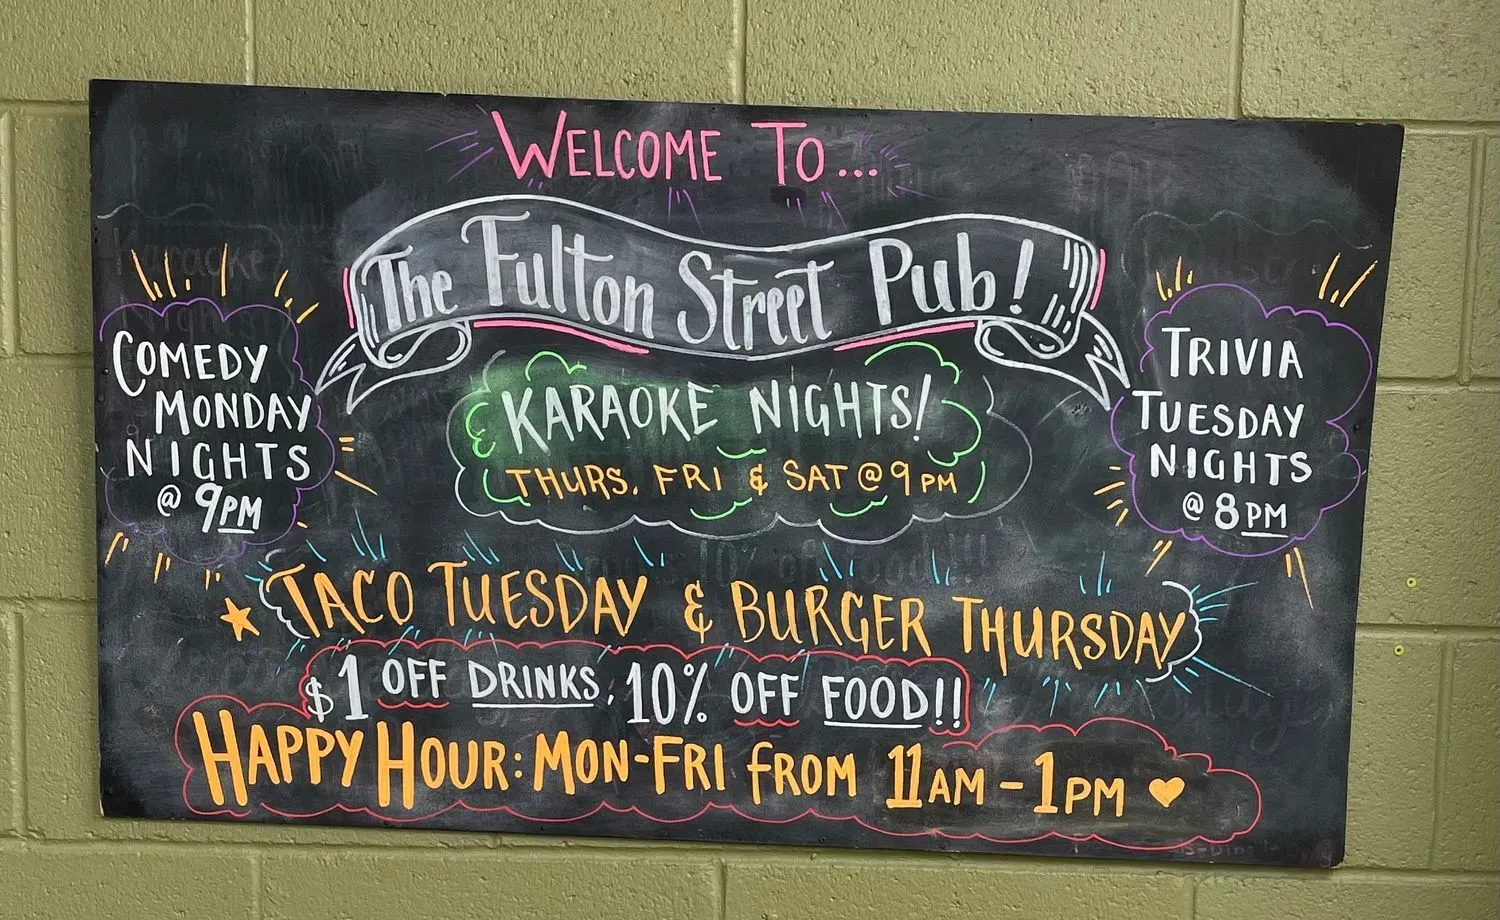 WELCOME TO...
The Fulton Street Pub!
COMEDY
MONDAY
NIGHTS
@ 9PM
KARAOKE NIGHTS!
THURS, FRI & SAT @ 9PM
TRIVIA
TUESDAY
NIGHTS
@ 8PM
TACO TUESDAY & BURGER THURSDAY
$1 OFF DRINKS, 10% OFF FOOD!!
HAPPY HOUR: MON-FRI FROM 11AM - 1PM